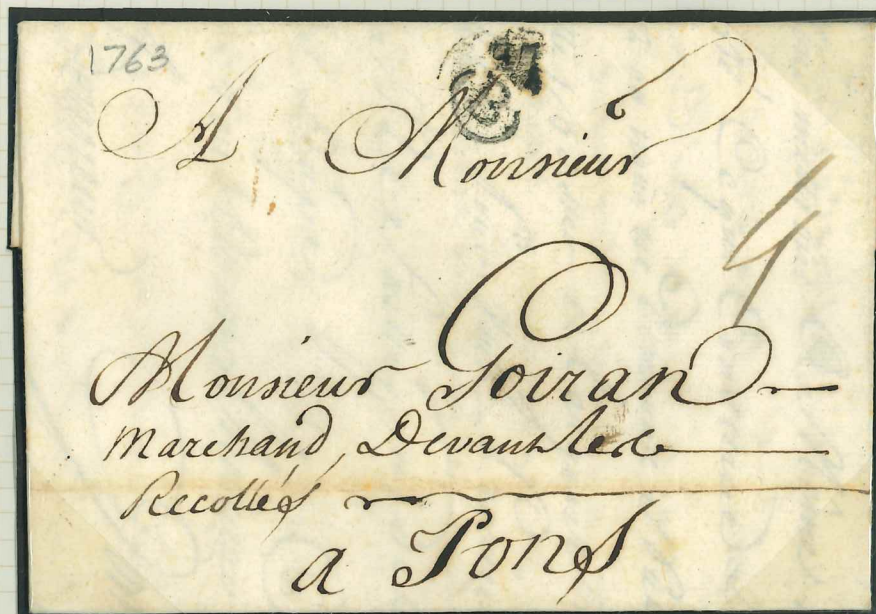 1763
A Monsieur
4
Monsieur Goiran
Marchand, Devant les
Recollés
a Pons